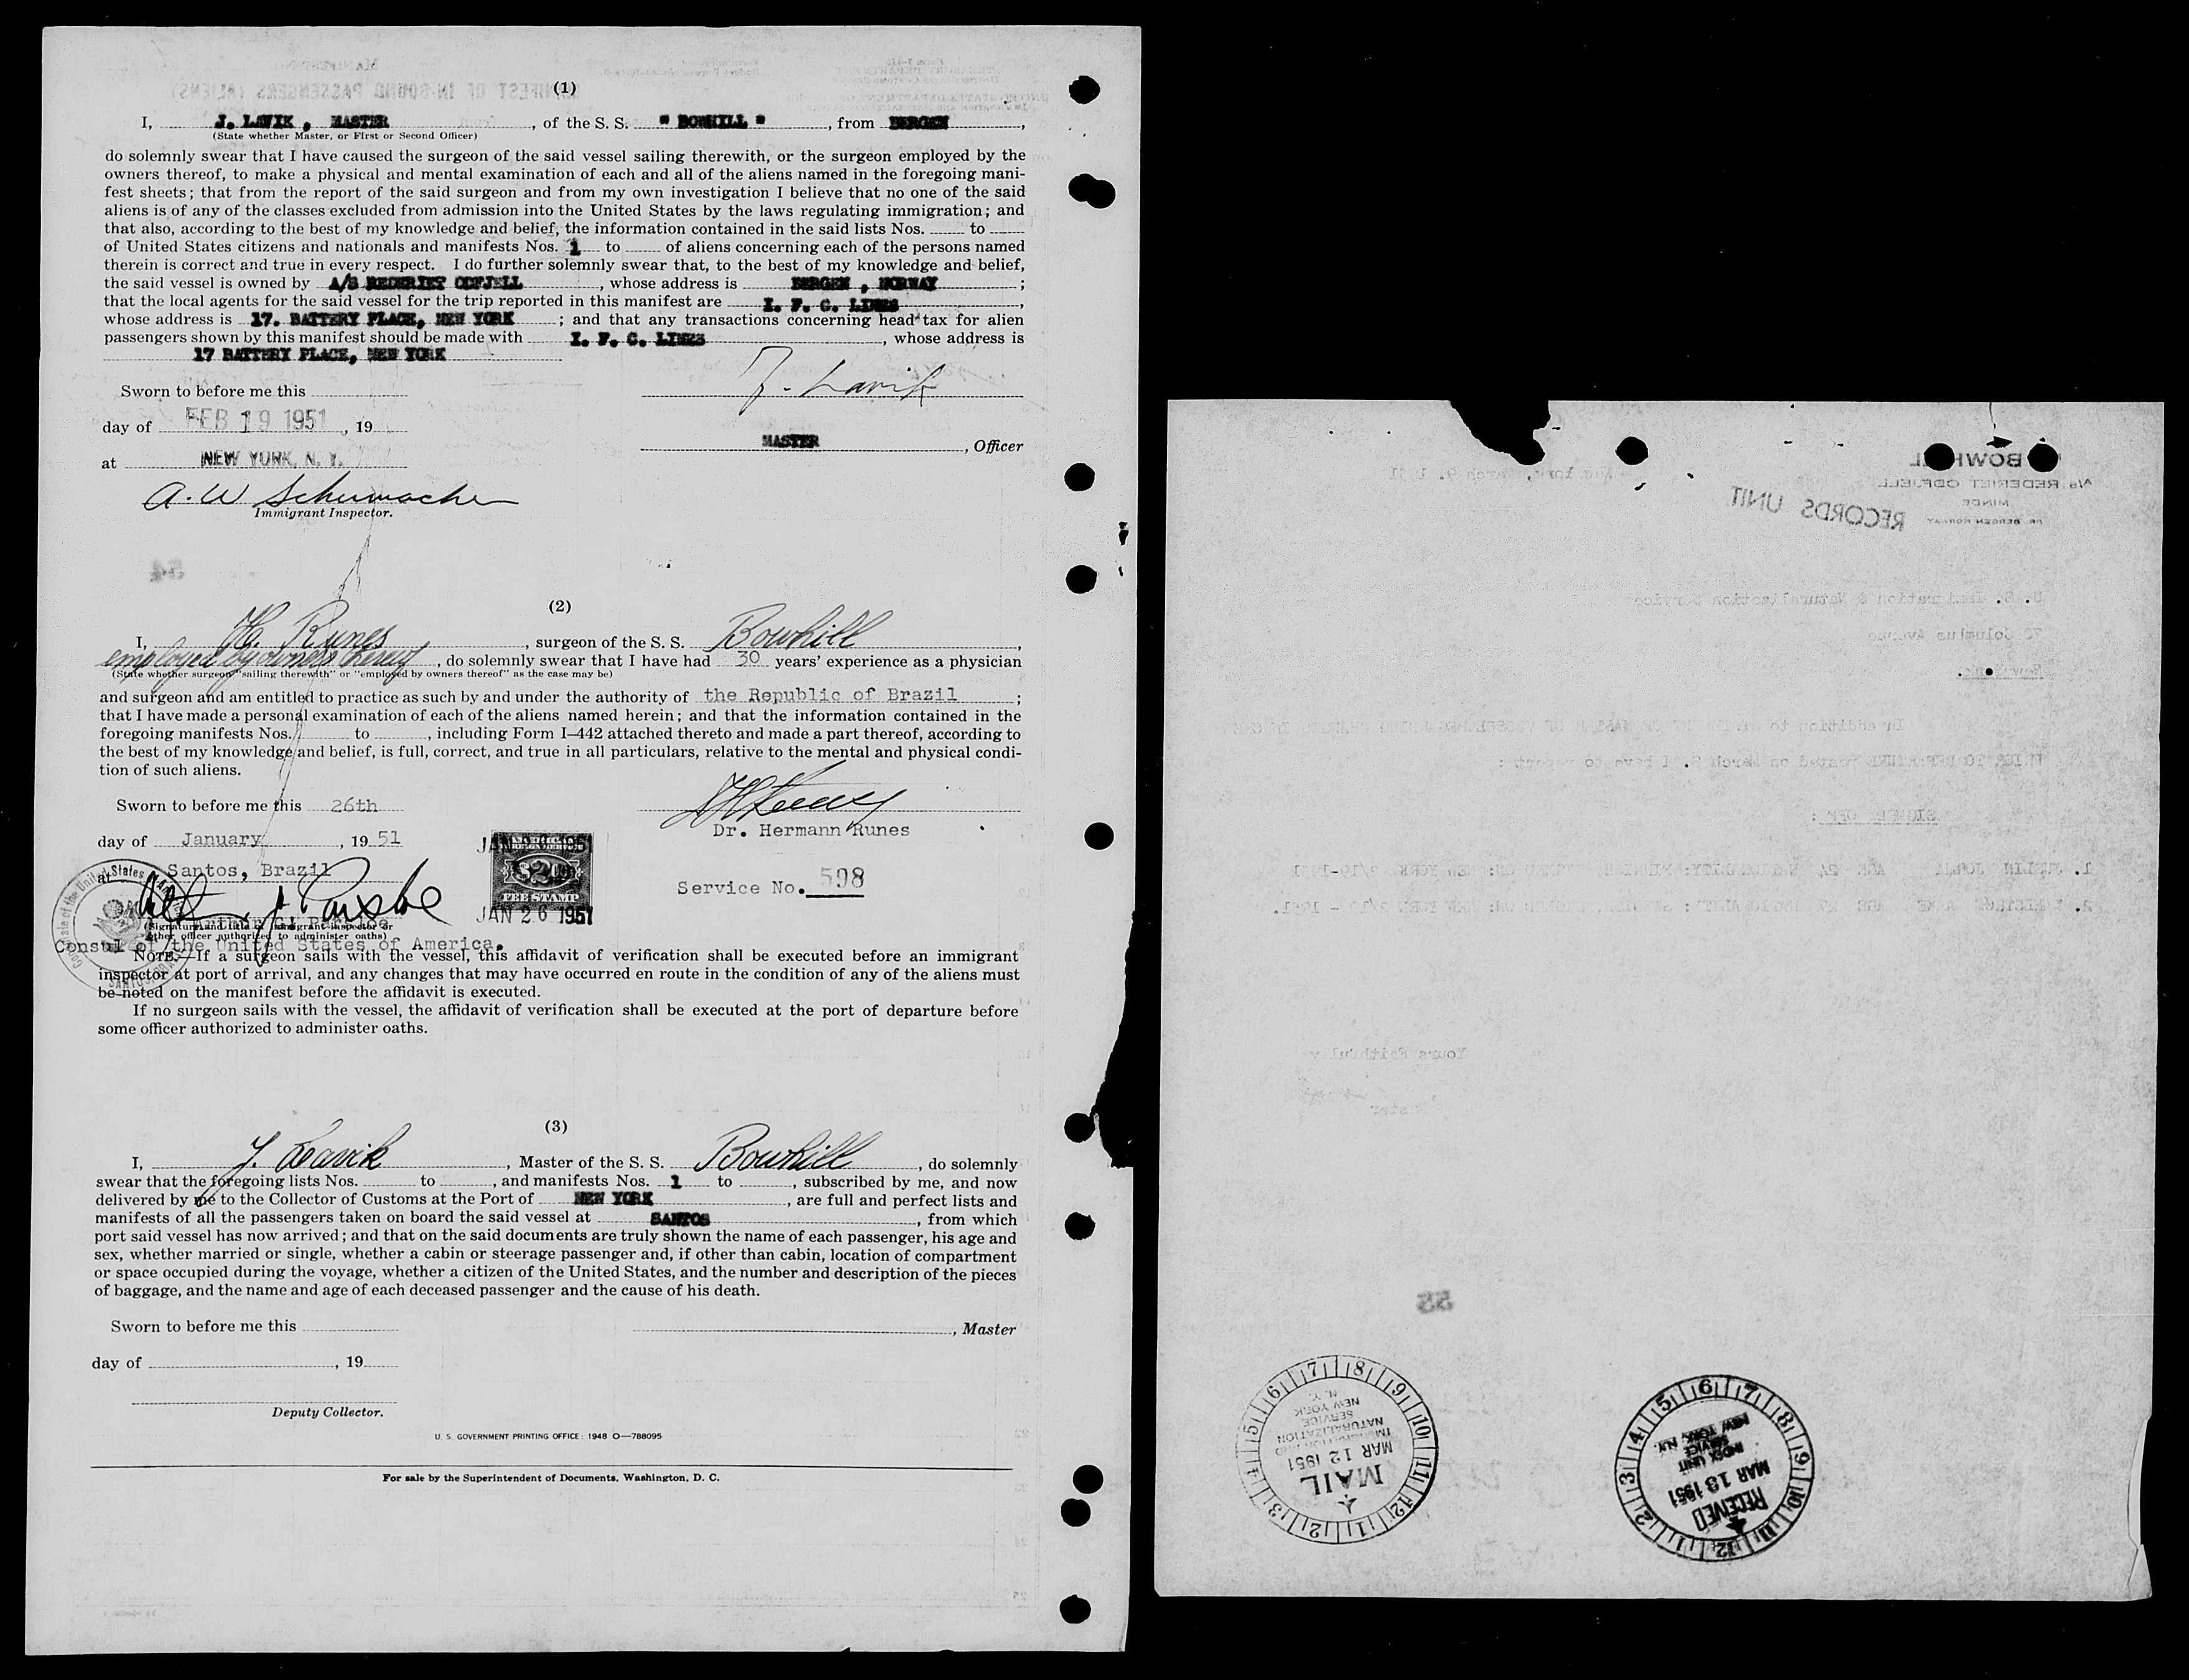 (1)
I, J. LAVIK , MASTER , of the S. S. " BOWHILL " , from BERGEN ,
(State whether Master, or First or Second Officer)
do solemnly swear that I have caused the surgeon of the said vessel sailing therewith, or the surgeon employed by the
owners thereof, to make a physical and mental examination of each and all of the aliens named in the foregoing mani-
fest sheets; that from the report of the said surgeon and from my own investigation I believe that no one of the said
aliens is of any of the classes excluded from admission into the United States by the laws regulating immigration; and
that also, according to the best of my knowledge and belief, the information contained in the said lists Nos. to
of United States citizens and nationals and manifests Nos. 1 to of aliens concerning each of the persons named
therein is correct and true in every respect. I do further solemnly swear that, to the best of my knowledge and belief,
the said vessel is owned by A/S REDERIET ODFJELL , whose address is BERGEN , NORWAY ;
that the local agents for the said vessel for the trip reported in this manifest are I. F. C. LINES ,
whose address is 17. BATTERY PLACE, NEW YORK ; and that any transactions concerning head tax for alien
passengers shown by this manifest should be made with I. F. C. LINES , whose address is
17 BATTERY PLACE, NEW YORK
J. Lavik
Sworn to before me this
day of FEB 19 1951 , 19
MASTER , Officer
at NEW YORK, N. Y.
A. W Schumacher
Immigrant Inspector.
54
(2)
I, H. Runes , surgeon of the S. S. Bowhill ,
employed by owners thereof , do solemnly swear that I have had 30 years' experience as a physician
(State whether surgeon "sailing therewith" or "employed by owners thereof" as the case may be)
and surgeon and am entitled to practice as such by and under the authority of the Republic of Brazil ;
that I have made a personal examination of each of the aliens named herein; and that the information contained in the
foregoing manifests Nos. to , including Form I-442 attached thereto and made a part thereof, according to
the best of my knowledge and belief, is full, correct, and true in all particulars, relative to the mental and physical condi-
tion of such aliens.
Sworn to before me this 26th
Dr. Hermann Runes
day of January , 19 51
at Santos, Brazil
$2
FEE STAMP
JAN 26 1951
Service No. 598
(Signature and title of immigrant inspector or
other officer authorized to administer oaths)
Consul of the United States of America.
NOTE.—If a surgeon sails with the vessel, this affidavit of verification shall be executed before an immigrant
inspector at port of arrival, and any changes that may have occurred en route in the condition of any of the aliens must
be noted on the manifest before the affidavit is executed.
If no surgeon sails with the vessel, the affidavit of verification shall be executed at the port of departure before
some officer authorized to administer oaths.
(3)
I, J. Lavik , Master of the S. S. Bowhill , do solemnly
swear that the foregoing lists Nos. to , and manifests Nos. 1 to , subscribed by me, and now
delivered by me to the Collector of Customs at the Port of NEW YORK , are full and perfect lists and
manifests of all the passengers taken on board the said vessel at SANTOS , from which
port said vessel has now arrived; and that on the said documents are truly shown the name of each passenger, his age and
sex, whether married or single, whether a cabin or steerage passenger and, if other than cabin, location of compartment
or space occupied during the voyage, whether a citizen of the United States, and the number and description of the pieces
of baggage, and the name and age of each deceased passenger and the cause of his death.
Sworn to before me this
, Master
day of , 19
Deputy Collector.
U. S. GOVERNMENT PRINTING OFFICE: 1948 O—788095
For sale by the Superintendent of Documents, Washington, D. C.
BOWHILL
A/s REDERIET ODFJELL
MINDE
PR. BERGEN NORWAY
New York, March 9. 1951
RECORDS UNIT
U. S. Immigration & Naturalization Service
70 Columbus Avenue
New York.
SIGNED OFF :
Yours Faithfully
Master
55
MAIL
MAR 12 1951
IMMIGRATION AND
NATURALIZATION
SERVICE
NEW YORK
N. Y.
RECEIVED
MAR 13 1951
INDEX UNIT
SERVICE
NEW YORK, N.Y.